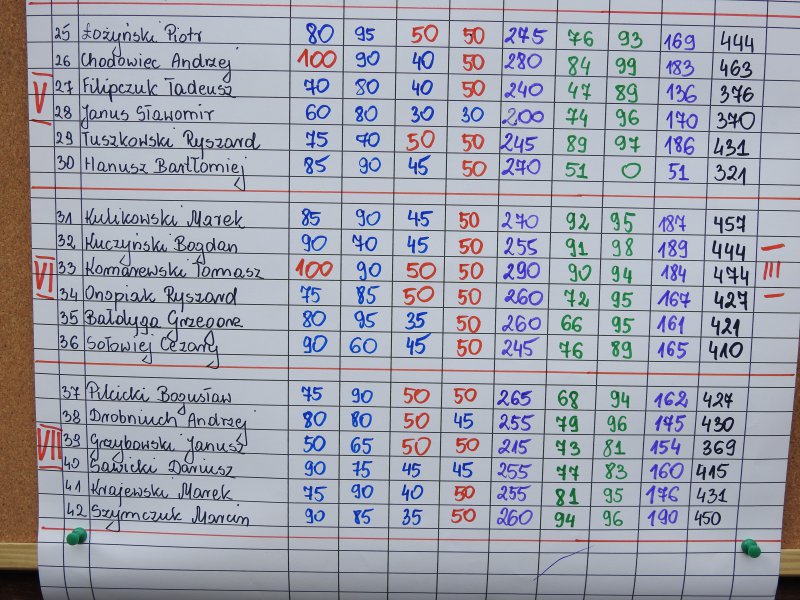 25 Łożyński Piotr 80 95 50 50 275 76 93 169 444
26 Chodowiec Andrzej 100 90 40 50 280 84 99 183 463
V 27 Filipczuk Tadeusz 70 80 40 50 240 47 89 136 376
28 Janus Sławomir 60 80 30 30 200 74 96 170 370
29 Tuszkowski Ryszard 75 70 50 50 245 89 97 186 431
30 Hanusz Bartłomiej 85 90 45 50 270 51 0 51 321
31 Kulikowski Marek 85 90 45 50 270 92 95 187 457
32 Kuczyński Bogdan 90 70 45 50 255 91 98 189 444
VI 33 Komanewski Tomasz 100 90 50 50 290 90 94 184 474 III
34 Onopiak Ryszard 75 85 50 50 260 72 95 167 427
35 Bałdyga Grzegorz 80 95 35 50 260 66 95 161 421
36 Sołowiej Cezary 90 60 45 50 245 76 89 165 410
37 Bogusław 75 90 50 50 265 68 94 162 427
38 Drobniuch Andrzej 80 80 50 45 255 79 96 175 430
VII 39 Grzybowski Janusz 50 65 50 50 215 73 81 154 369
40 Sawicki Dariusz 90 75 45 45 255 77 83 160 415
41 Krajewski Marek 75 90 40 50 255 81 95 176 431
42 Szymczuk Marcin 90 85 35 50 260 94 96 190 450